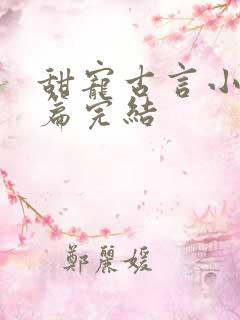 甜寵古言小
篇完結
鄭麗媛